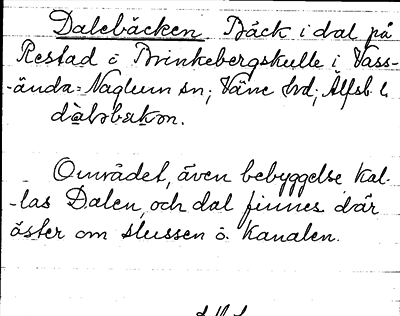 Dalebäcken Bäck i dal på
Restad o Brinkebergskulle i Vass-
-ända-Naglum sn; Väne hd; Älfsb. l.
dàləbækən.
Området, även bebyggelse kal-
-las Dalen, och dal finnes där
öster om slussen o. kanalen.